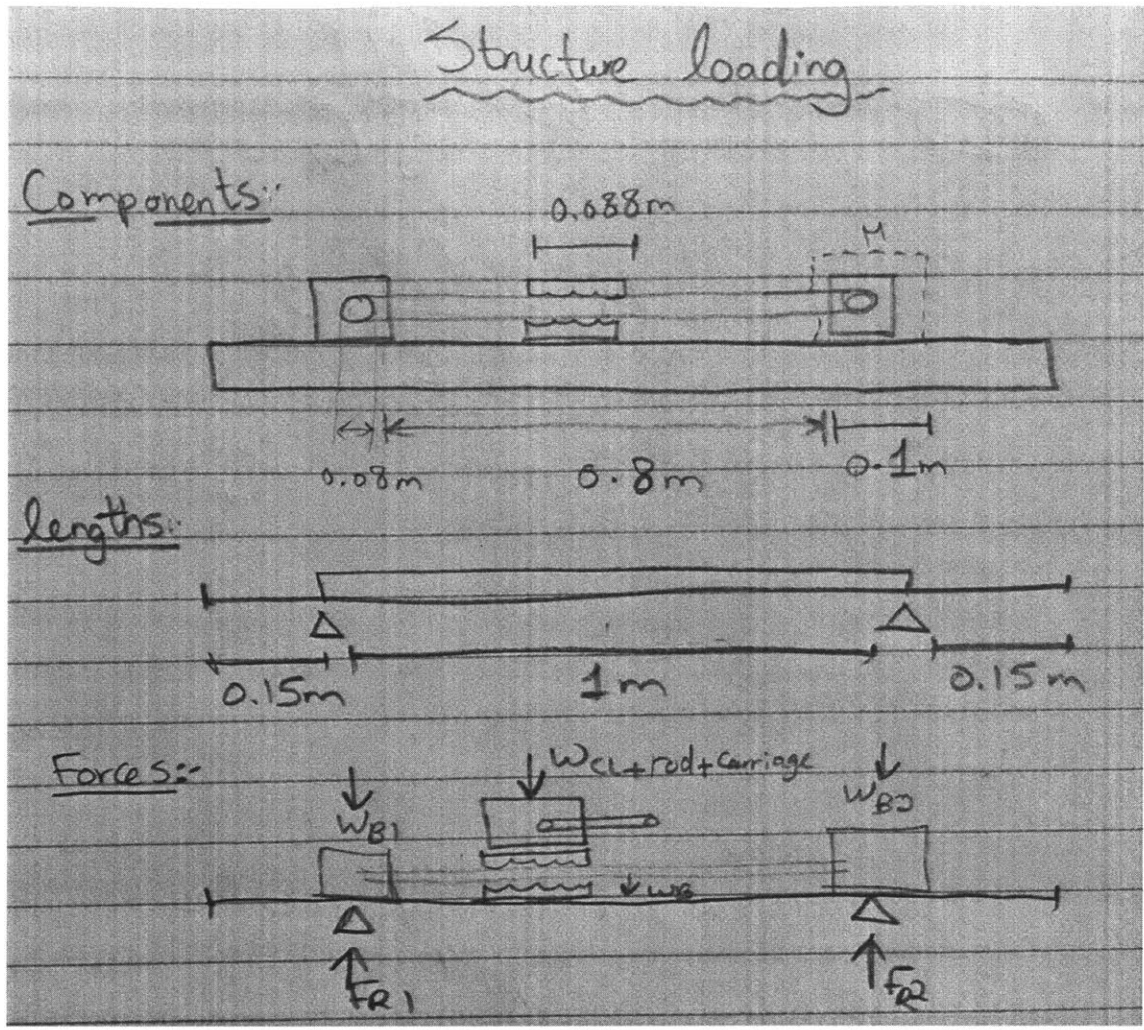 Structure loading
Components:-
0.088m
M
0.08m
0.8m
0.1m
lengths:-
0.15m
1m
0.15m
Forces:-
WCL+rod+carriage
WB1
WB2
WB
FR1
FR2